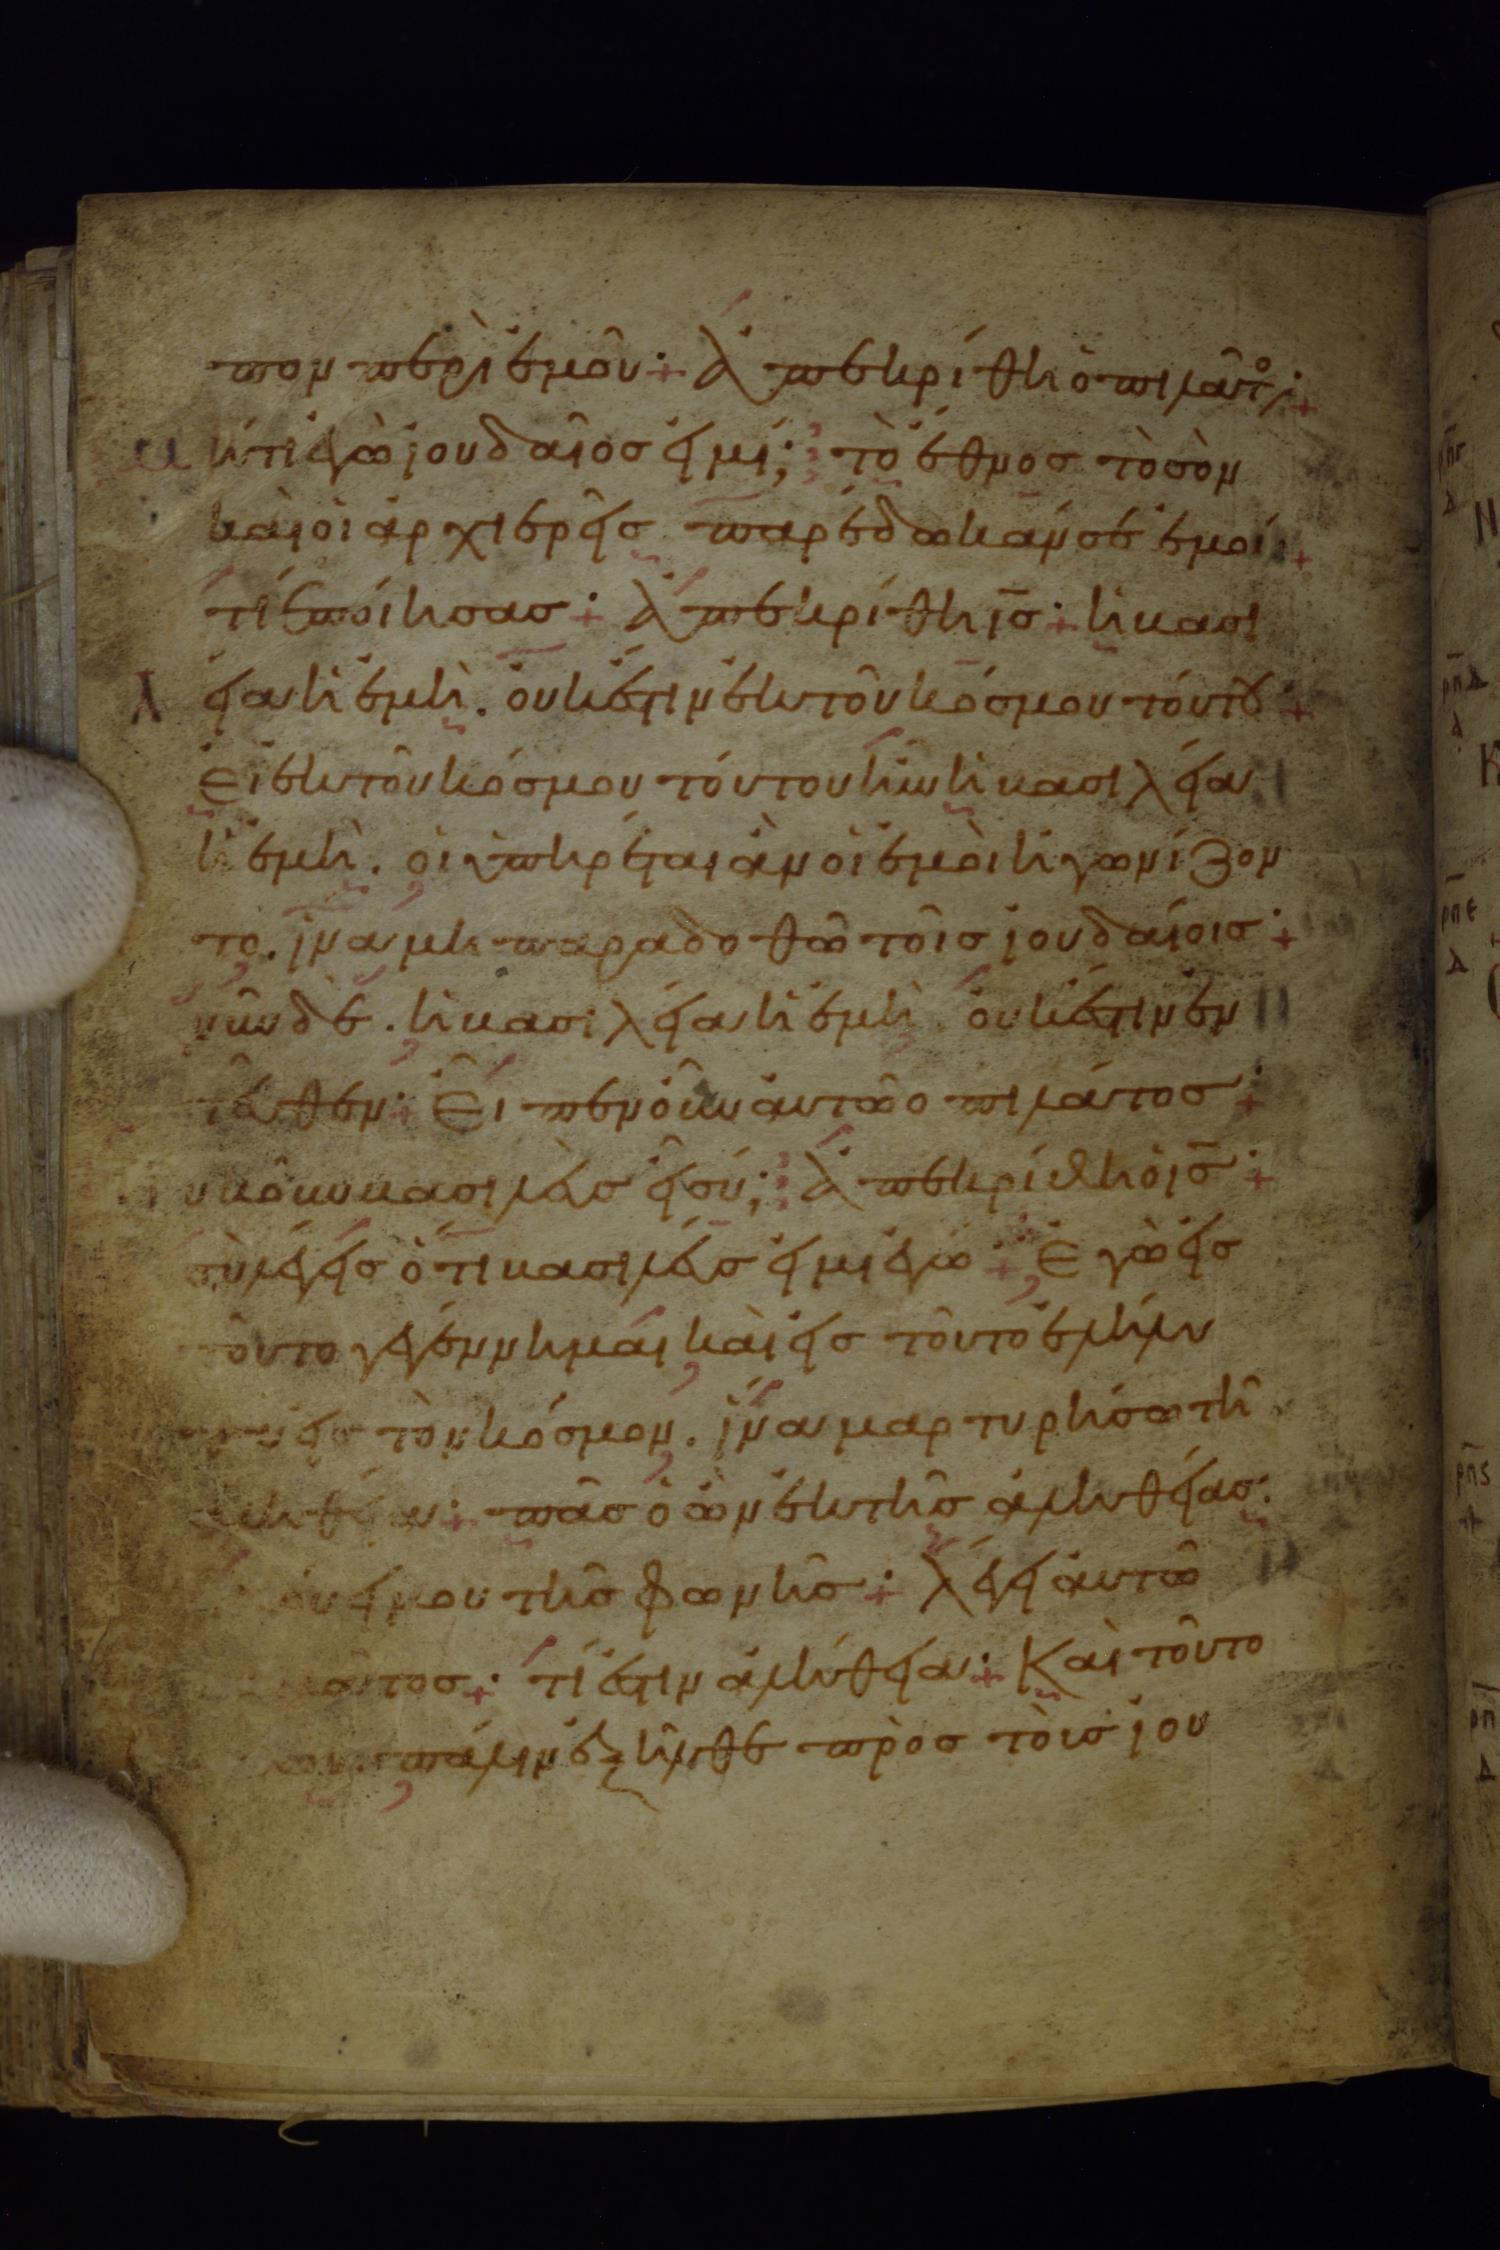 πον περὶ ἐμοῦ· Ἀπεκρίθη ὁ πιλᾶτο·
μήτι ἐγὼ ἰουδαῖος εἰμί; τὸ ἔθνος τὸ σὸν
καὶ οἱ ἀρχιερεῖς παρέδωκάν σε ἐμοί·
τί ἐποίησας· Ἀπεκρίθη ις· ἡ βασι
λεία ἡ ἐμὴ. οὐκ ἔστιν ἐκ τοῦ κόσμου τούτου·
Εἰ ἐκ τοῦ κόσμου τούτου ἦν ἡ βασιλεία
ἡ ἐμὴ. οἱ ὑπηρέται ἂν οἱ ἐμοὶ ἠγωνίζον
το. ἵνα μὴ παραδοθῶ τοῖς ἰουδαίοις·
νῦν δὲ. ἡ βασιλεία ἡ ἐμὴ. οὐκ ἔστιν ἐν
τεῦθεν· Εἶπεν οὖν αὐτῶ ὁ πιλάτος·
οὐκοῦν βασιλεὺς εἶ σύ; Ἀπεκρίθη ὁ ις·
σὺ λέγεις ὅτι βασιλεύς εἰμι ἐγώ· Ἐγὼ εἰς
τοῦτο γεγέννημαι καὶ εἰς τοῦτο ἐλήλυ
εἰς τὸν κόσμον. ἵνα μαρτυρήσω τῆ
ἀληθεία· πᾶς ὁ ὢν ἐκ τῆς ἀληθείας.
ἀκούει μου τῆς φωνῆς· λέγει αὐτῶ
πιλᾶτος· τί ἐστιν ἀλήθεια· Καὶ τοῦτο
εἰπὼν. πάλιν ἐξῆλθε πρὸς τοὺς ἰου